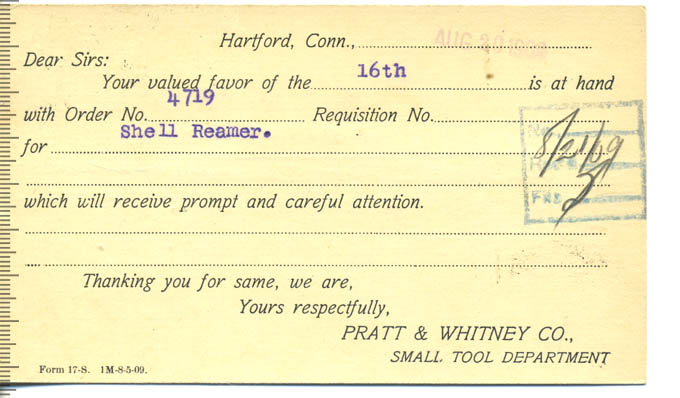 Hartford, Conn., AUG 20
Dear Sirs:
Your valued favor of the 16th is at hand
with Order No. 4719 Requisition No.
for Shell Reamer.
8/21/09
which will receive prompt and careful attention.
Thanking you for same, we are,
Yours respectfully,
PRATT & WHITNEY CO.,
SMALL TOOL DEPARTMENT
Form 17-S. 1M-8-5-09.